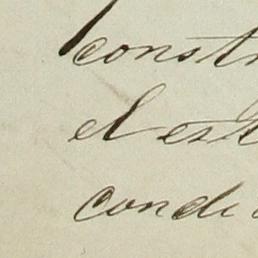 constr
el est
conde